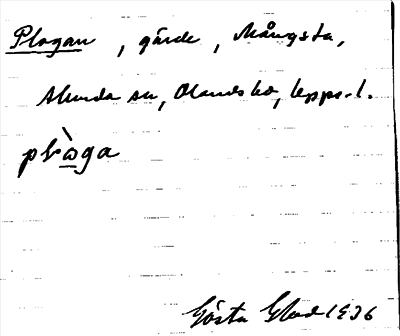 Plogan, gärde, Mångsta,
Skunda sn, Olandsho, Upps. l.
plò̱ga
Gösta Glad 1936